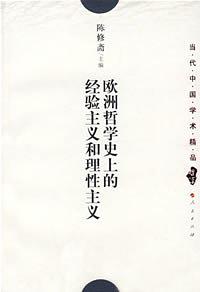 陈修斋 主编
欧洲哲学史上的
经验主义和理性主义
当代中国学术精品
人民出版社